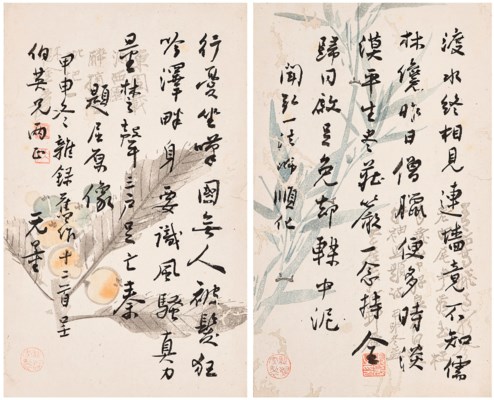 渡水終相見連墻竟不知儒
林昨日僧臘便多時淡
漠平生莊嚴一念持全
歸同啟足免却中泥
聞弘一法師順化
行憂坐嘆國無人被髮狂
吟澤畔身要識風騷真力
量楚聲三戶足亡秦
題屈原像
甲申冬雜錄舊作十二首呈
伯英兄兩正
无量